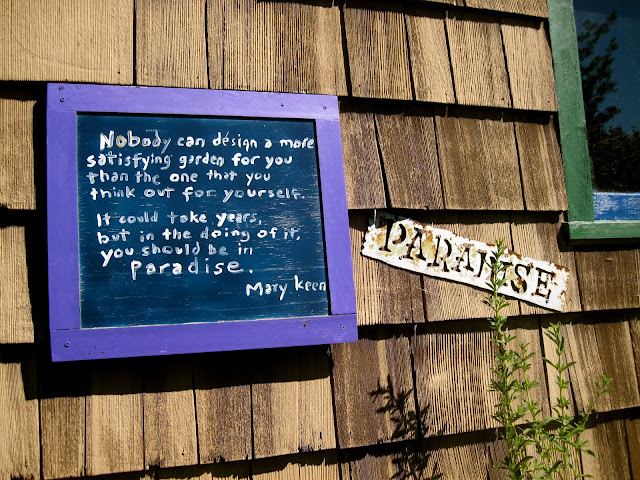 Nobody can design a more
satisfying garden for you
than the one that you
think out for yourself.
It could take years,
but in the doing of it,
you should be in
Paradise.
Mary Keen
PARADISE